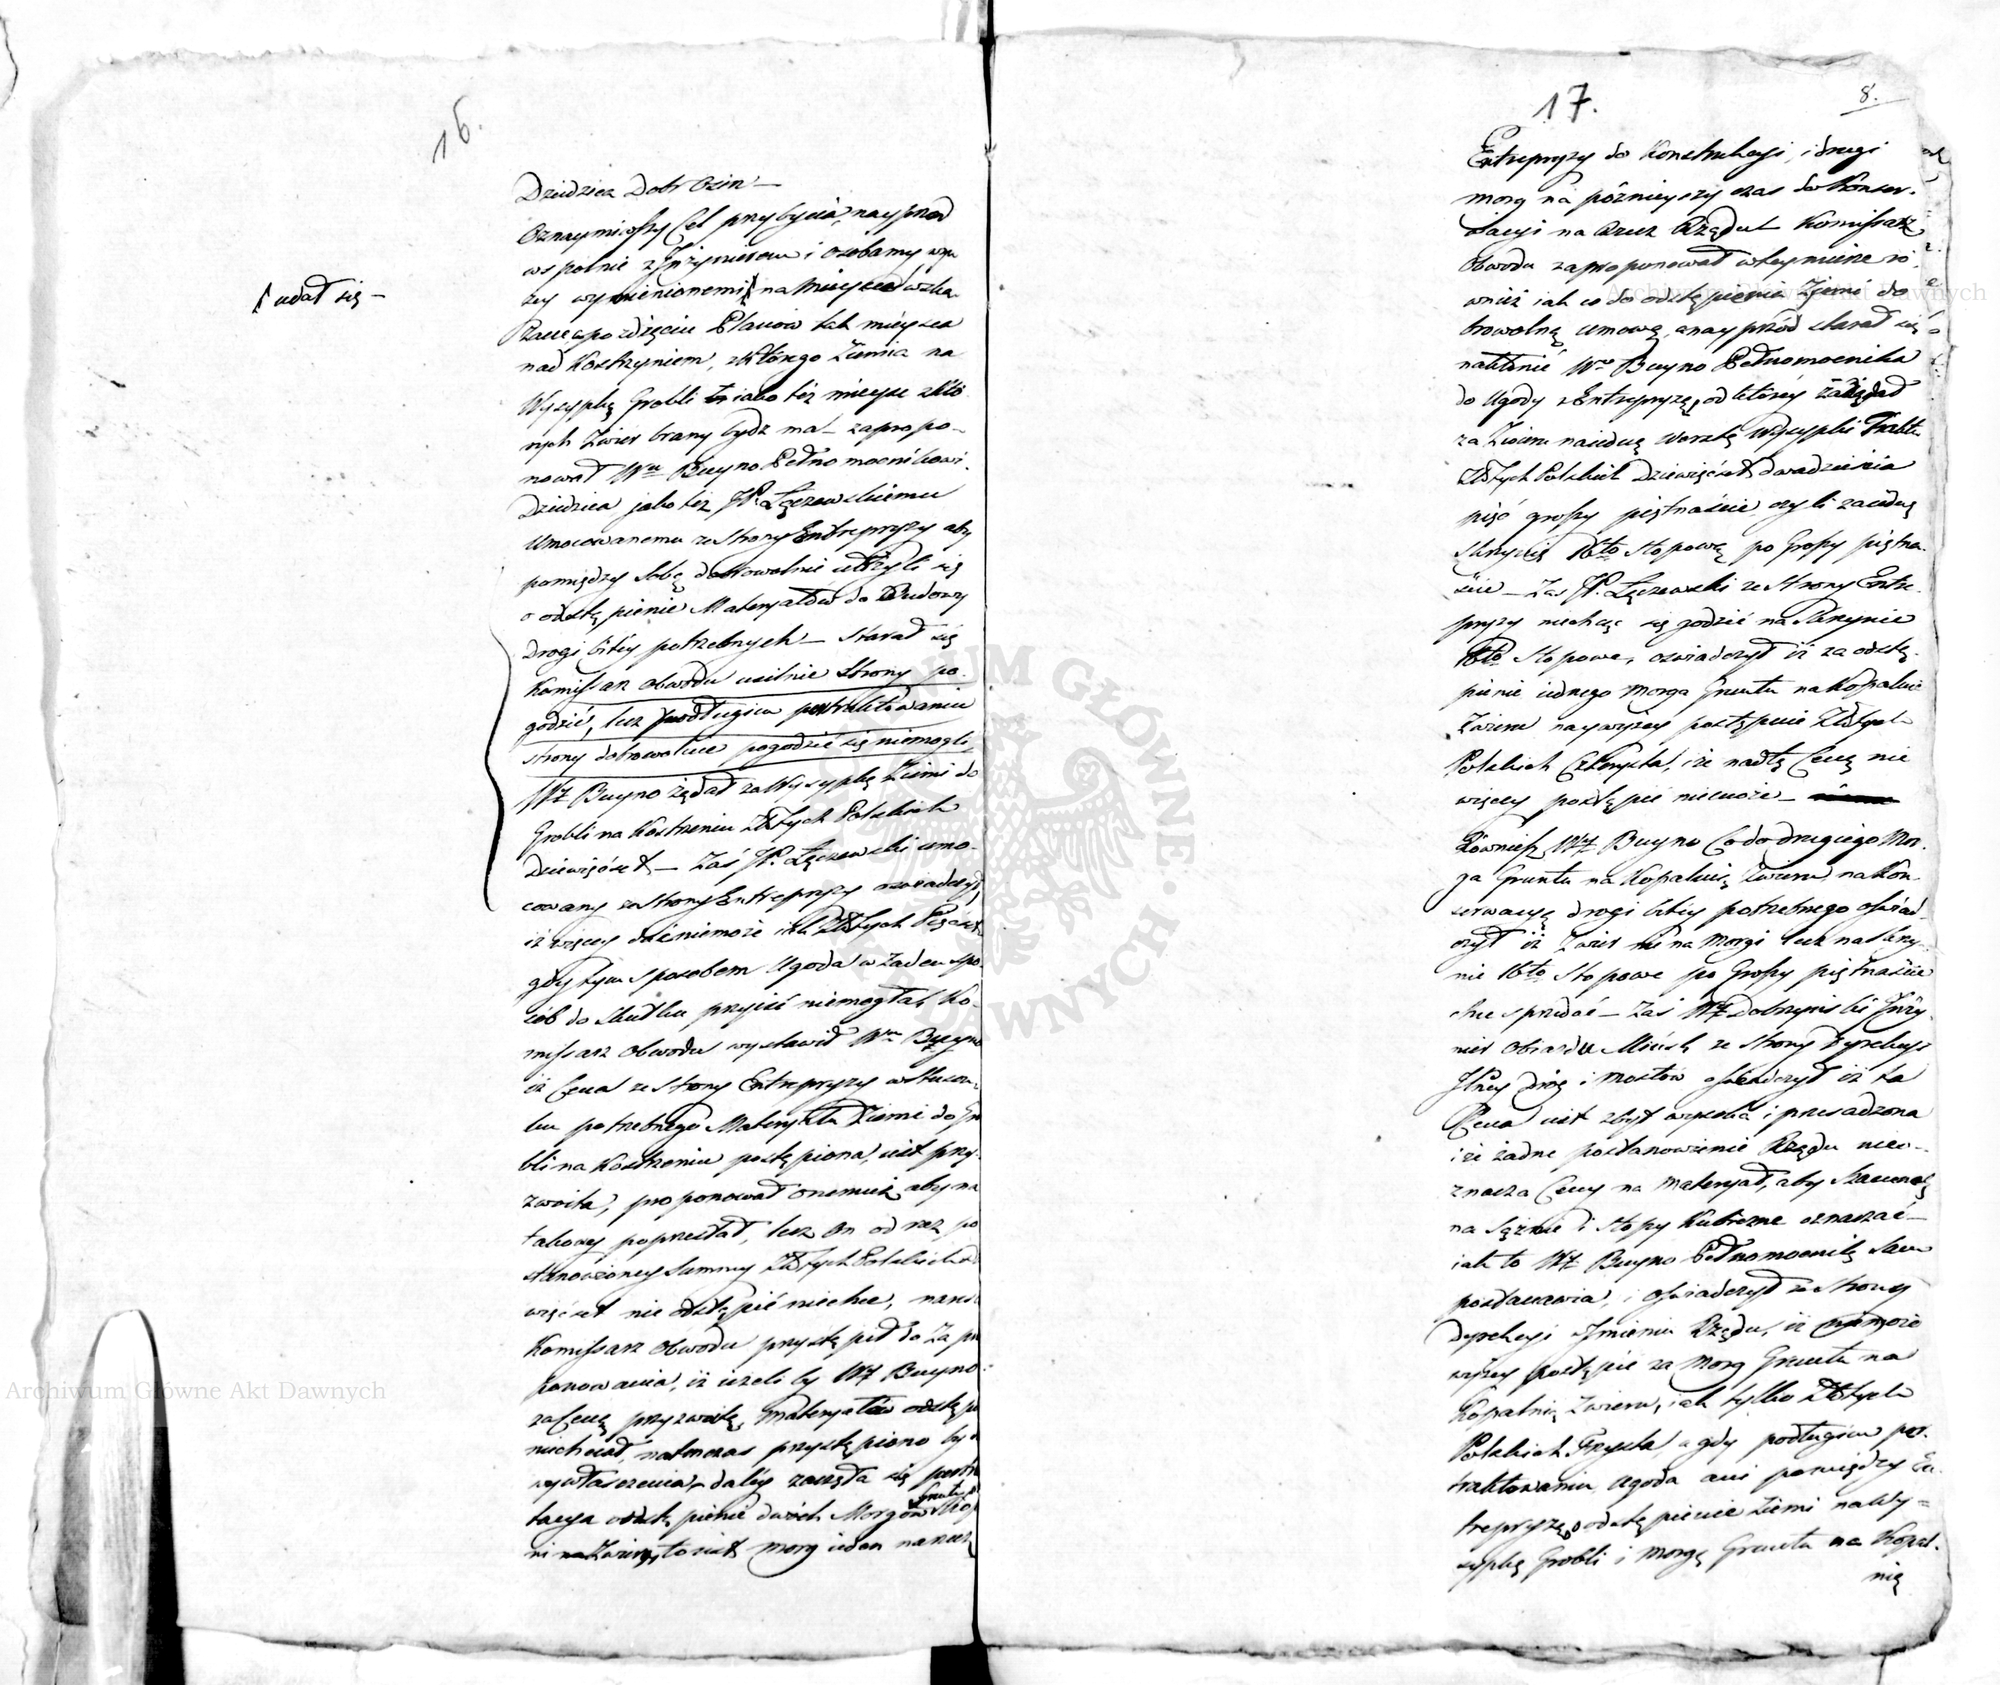 16.
Dziedzica Dobr Ozin —
Oznaymiwszy Cel przybycia, nayprzod
wspolnie z Jnżynierem i osobamy wy
żey wymienionemi na Mieysce wska
udał się —
zane po zdjęciu Planow tak mieysca
nad Kostrzyniem, z którego Ziemia na
Wysypkę Grobli iako też mieysc z któ
rych Żwir brany bydz ma — zapropo-
nował Wu Buyno Pełnomocnikowi
Dziedzica jako też JP. Łączewskiemu
Umocowanemu ze strony Entrepryzy aby
pomiędzy sobą dobrowolnie ułożyli się
o odstąpienie Materyałów do Budowy
Drogi bitey potrzebnych — starał się
Komissarz Obwodu usilnie strony po-
godzić, lecz po długiem pertraktowaniu
strony dobrowolnie pogodzić się niemogli,
WJ Buyno żądał za Wysypkę Ziemi do
Grobli na Kostrzeniu Złotych Polskich
Dziewięćset — Zaś JP. Łączewski umo-
cowany ze strony Entrepryzy oswiadczył,
iż więcey dać niemoże iak Złotych Pięćset
gdy tym sposobem Ugoda w żaden spo-
sób do skutku przyiść niemogła, Ko-
missarz Obwodu wystawił Wu Buyno
iż Cena ze strony Entrepryzy w stosun-
ku potrzebnego Materyału Ziemi do Gro
bli na Kostrzeniu postąpiona, iest przy-
zwoita, proponował onemuż aby na
takowey poprzestał, lecz On od raz po
stanowioney Summy Złotych Polskich
więćset nie odstąpić niechce,
Komissarz Obwodu przystąpił do Za pro
ponowania, iż ieżeli by WJ Buyno
za Cenę przyzwoitę, materyałów odstąpi
niechciał, natenczas przystąpiono by
wywłaszczenia, daley zaczęła się pertra
tacya o odstąpienie dwóch Morgów Gruntu
ni na Żwir, to iest morg ieden na rzecz
17.
8.
Entrepryzy do Konstrukcyi, i drugi
morg na późnieyszy czas do Konser-
wacyi na Rzecz Rządu Komissarz
Obwodu zaproponował w teymierze ró-
wnież iak co do odstąpienia Ziemi do
browolną umowę, a nayprzód starał się
nakłonić Wo Buyno Pełnomocnika
do Ugody z Entrepryzą, od którey żądał
za Ziemi na iedną Worstę Wysypki Traktu
Złotych Polskich Dziewięćset dwadzieścia
pięć groszy piętnaście czyli za iedną
skrzynię 16to stopową po Groszy piętna-
ście — Zas JP. Łączewski ze strony Entre-
pryzy niechcąc się godzić na skrzynie
16to stopowe, oswiadczył iż za odstą-
pienie iednego morga Gruntu na Kopalnie
Żwiru naywyżey postąpuie Złotych
Polskich Czterysta, i że nad tę Cenę nie
więcey postąpić niemoże —
Również WJ Buyno Co do drugiego Mor-
ga Gruntu na Kopalnię Żwiru, na Kon-
serwacyę drogi bitey potrzebnego oświad-
czył iż Żwir nie na morgi lecz na skrzy-
nie 16to stopowe po Groszy piętnaście
chce sprzedać — Zaś WJ Dobrzynski Jnży-
nier Obiazdu Mińsk ze strony Dyrekcyi
Jlney dróg i mostów oświadczył iż ta
Cena iest zbyt wysoka i przesadzona
i że żadne postanowienie Rządu nieo-
znacza Ceny na materyał, aby szacunek
na sążnie i stopy Kubiczne oznaczać —
iak to WJ Buyno Pełnomocnik sam
postanawia, i oświadczył ze strony
Dyrekcyi w Jmieniu Rządu, iż niemoże
wyżey postąpić za morg Gruntu na
Kopalnią Żwiru, iak tylko Złotych
Polskich Trzysta a gdy po długim per-
traktowaniu Ugoda ani pomiędzy En-
trepryzą o odstąpienie Ziemi na Wy-
sypkę Grobli i morgę Gruntu na Kopal-
nię